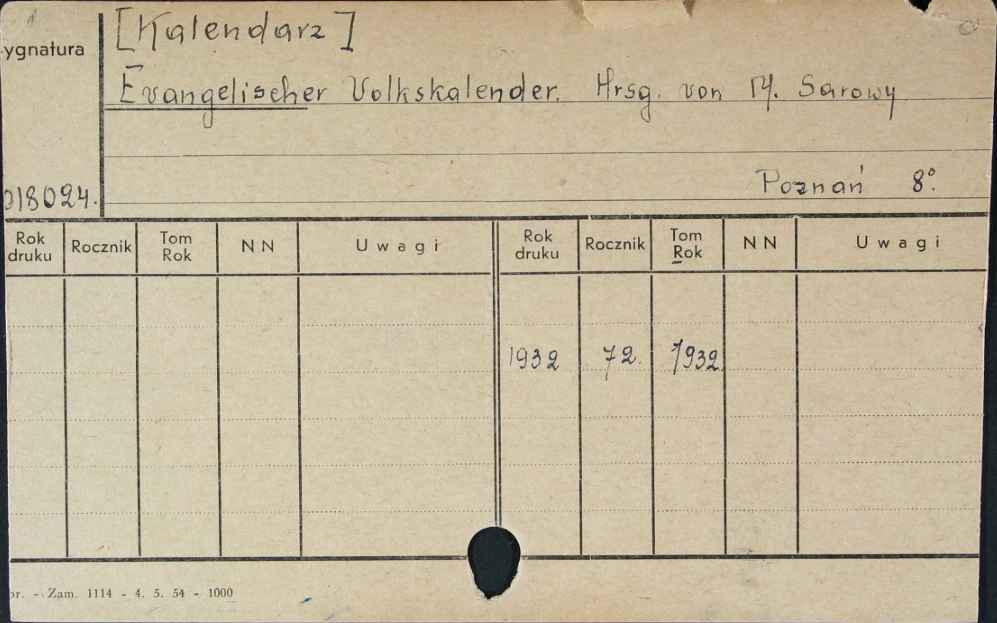 [Kalendarz]
ygnatura
Evangelischer Volkskalender. Hrsg. von M. Sarowy
Poznań 8°.
018024.
Rok druku Rocznik Tom Rok NN Uwagi Rok druku Rocznik Tom Rok NN Uwagi
1932 72. 1932
or. - Zam. 1114 - 4. 5. 54 - 1000